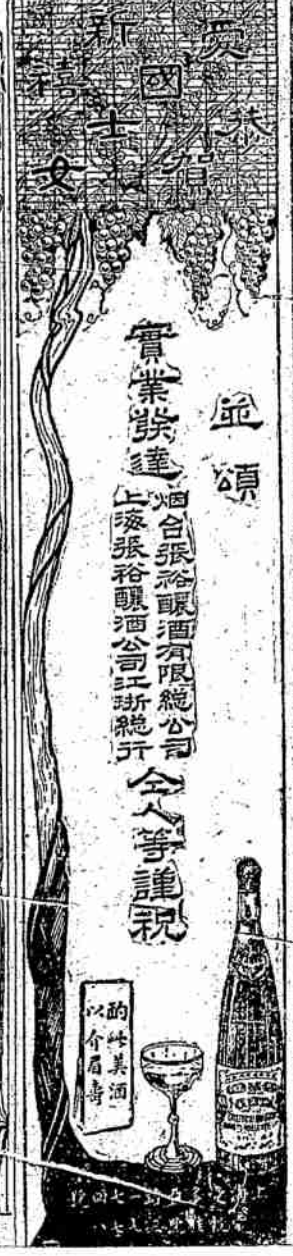 恭賀
愛國士女
新禧
並頌
實業發達
烟台張裕釀酒有限總公司
上海張裕釀酒公司江浙總行
仝人等謹祝
酌此美酒
以介眉壽